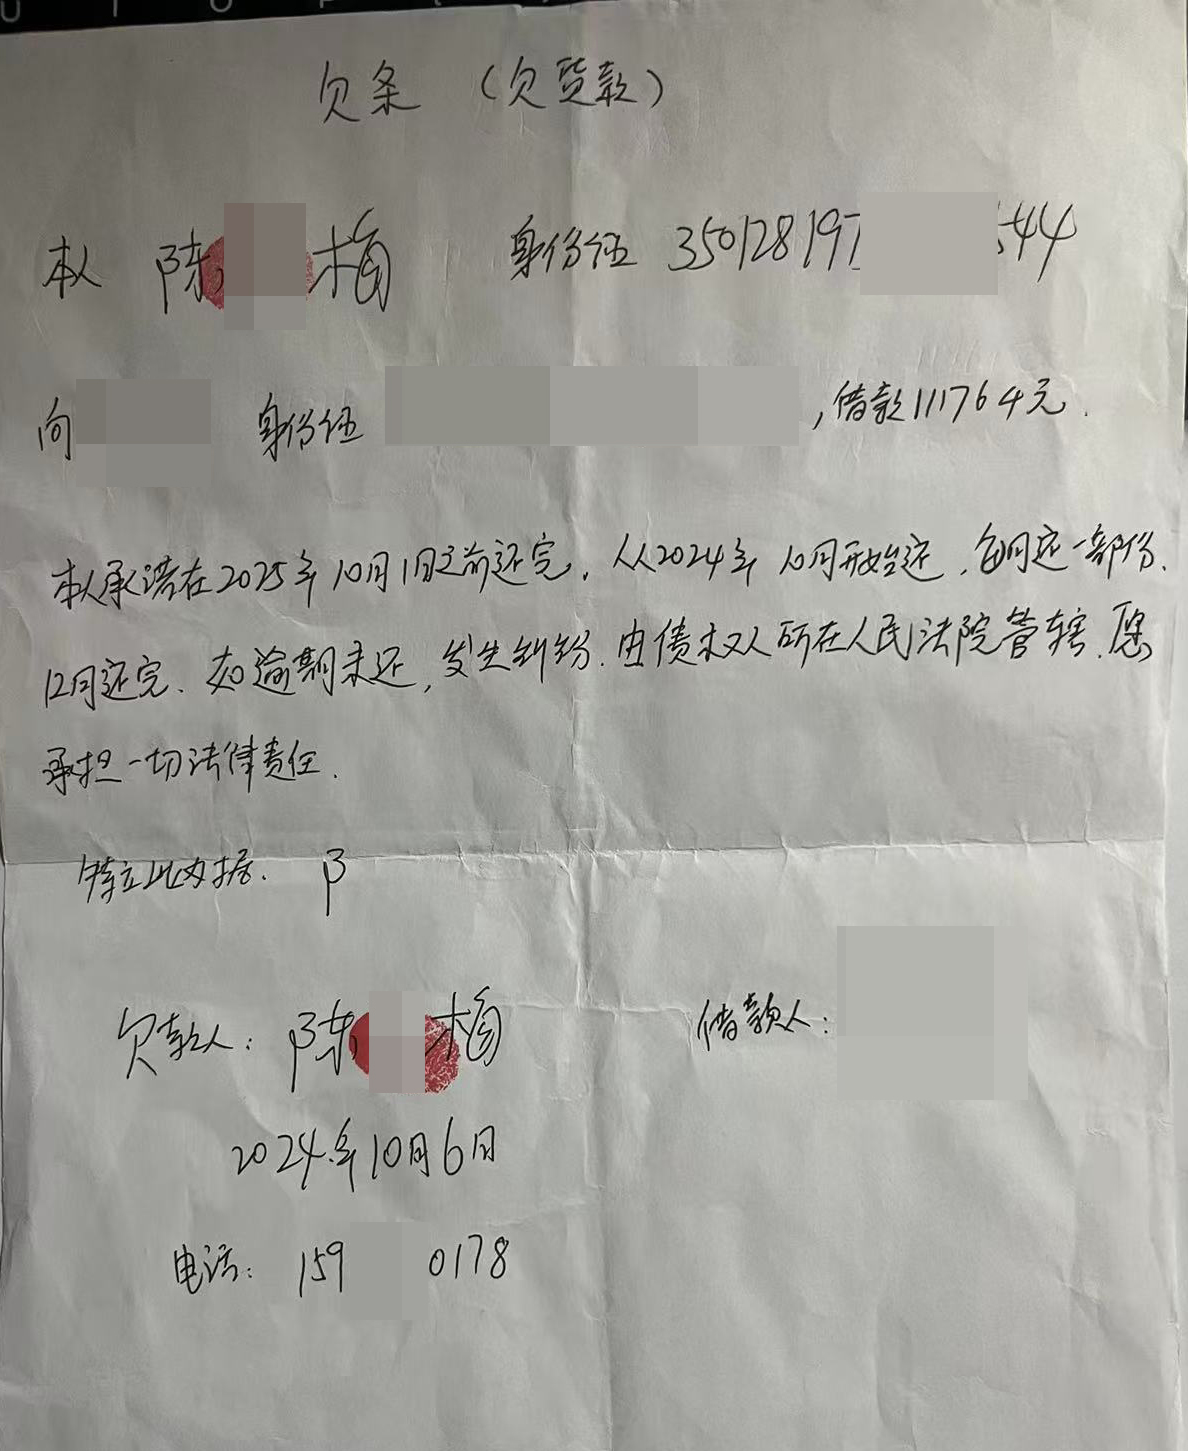 欠条 (欠货款)
本人 陈 梅 身份证 350128197 544
向 身份证 ,借款111764元.
本人承诺在2025年10月1日之前还完. 从2024年 10月开始还,每月还一部份.
12月还完. 如逾期未还,发生纠纷.由债权人所在人民法院管辖.愿
承担一切法律责任.
特立此为据. 阝
欠款人: 陈 梅 借款人:
2024年10月6日
电话: 159 0178